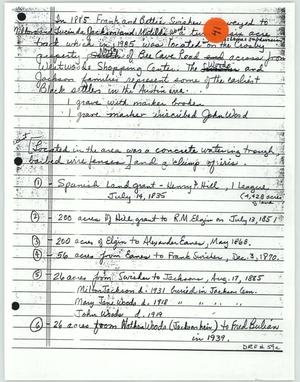 In 1885 Frank and Bettie Swisher conveyed to
Milton and Lucinda Jackson and Matilda a twenty six acre
tract which in 1985 was located on the Crosby
property north of Bee Caves Road and across from
Westwoods Shopping Center. The Woods and
Jackson families represent some of the earliest
Black settlers in the Austin area.
1 grave with marker broken
1 grave marker inscribed John Wood
[Located in the area was a concrete watering trough,
barbed wire fences] and a clump of iris.
① - Spanish Land grant - Henry P. Hill, 1 league,
July 14, 1835
(4,428 acres
② - 200 acres of Hill grant to R.M. Elgin on July 13, 1851
③ - 200 acres of Elgin to Alexander Eanes, May 1868.
④ - 56 acres from Eanes to Frank Swisher, Dec. 3, 1870.
⑤ - 26 acres from Swisher to Jacksons, Aug. 17, 1885
Milton Jackson d. 1931 buried in Jackson Cem.
Mary Jane Woods d. 1918 " " " "
John Woods d. 1919
⑥ - 26 acres from Nathan Woods (Jackson heir) to Fred
in 1939.
DRB # 592